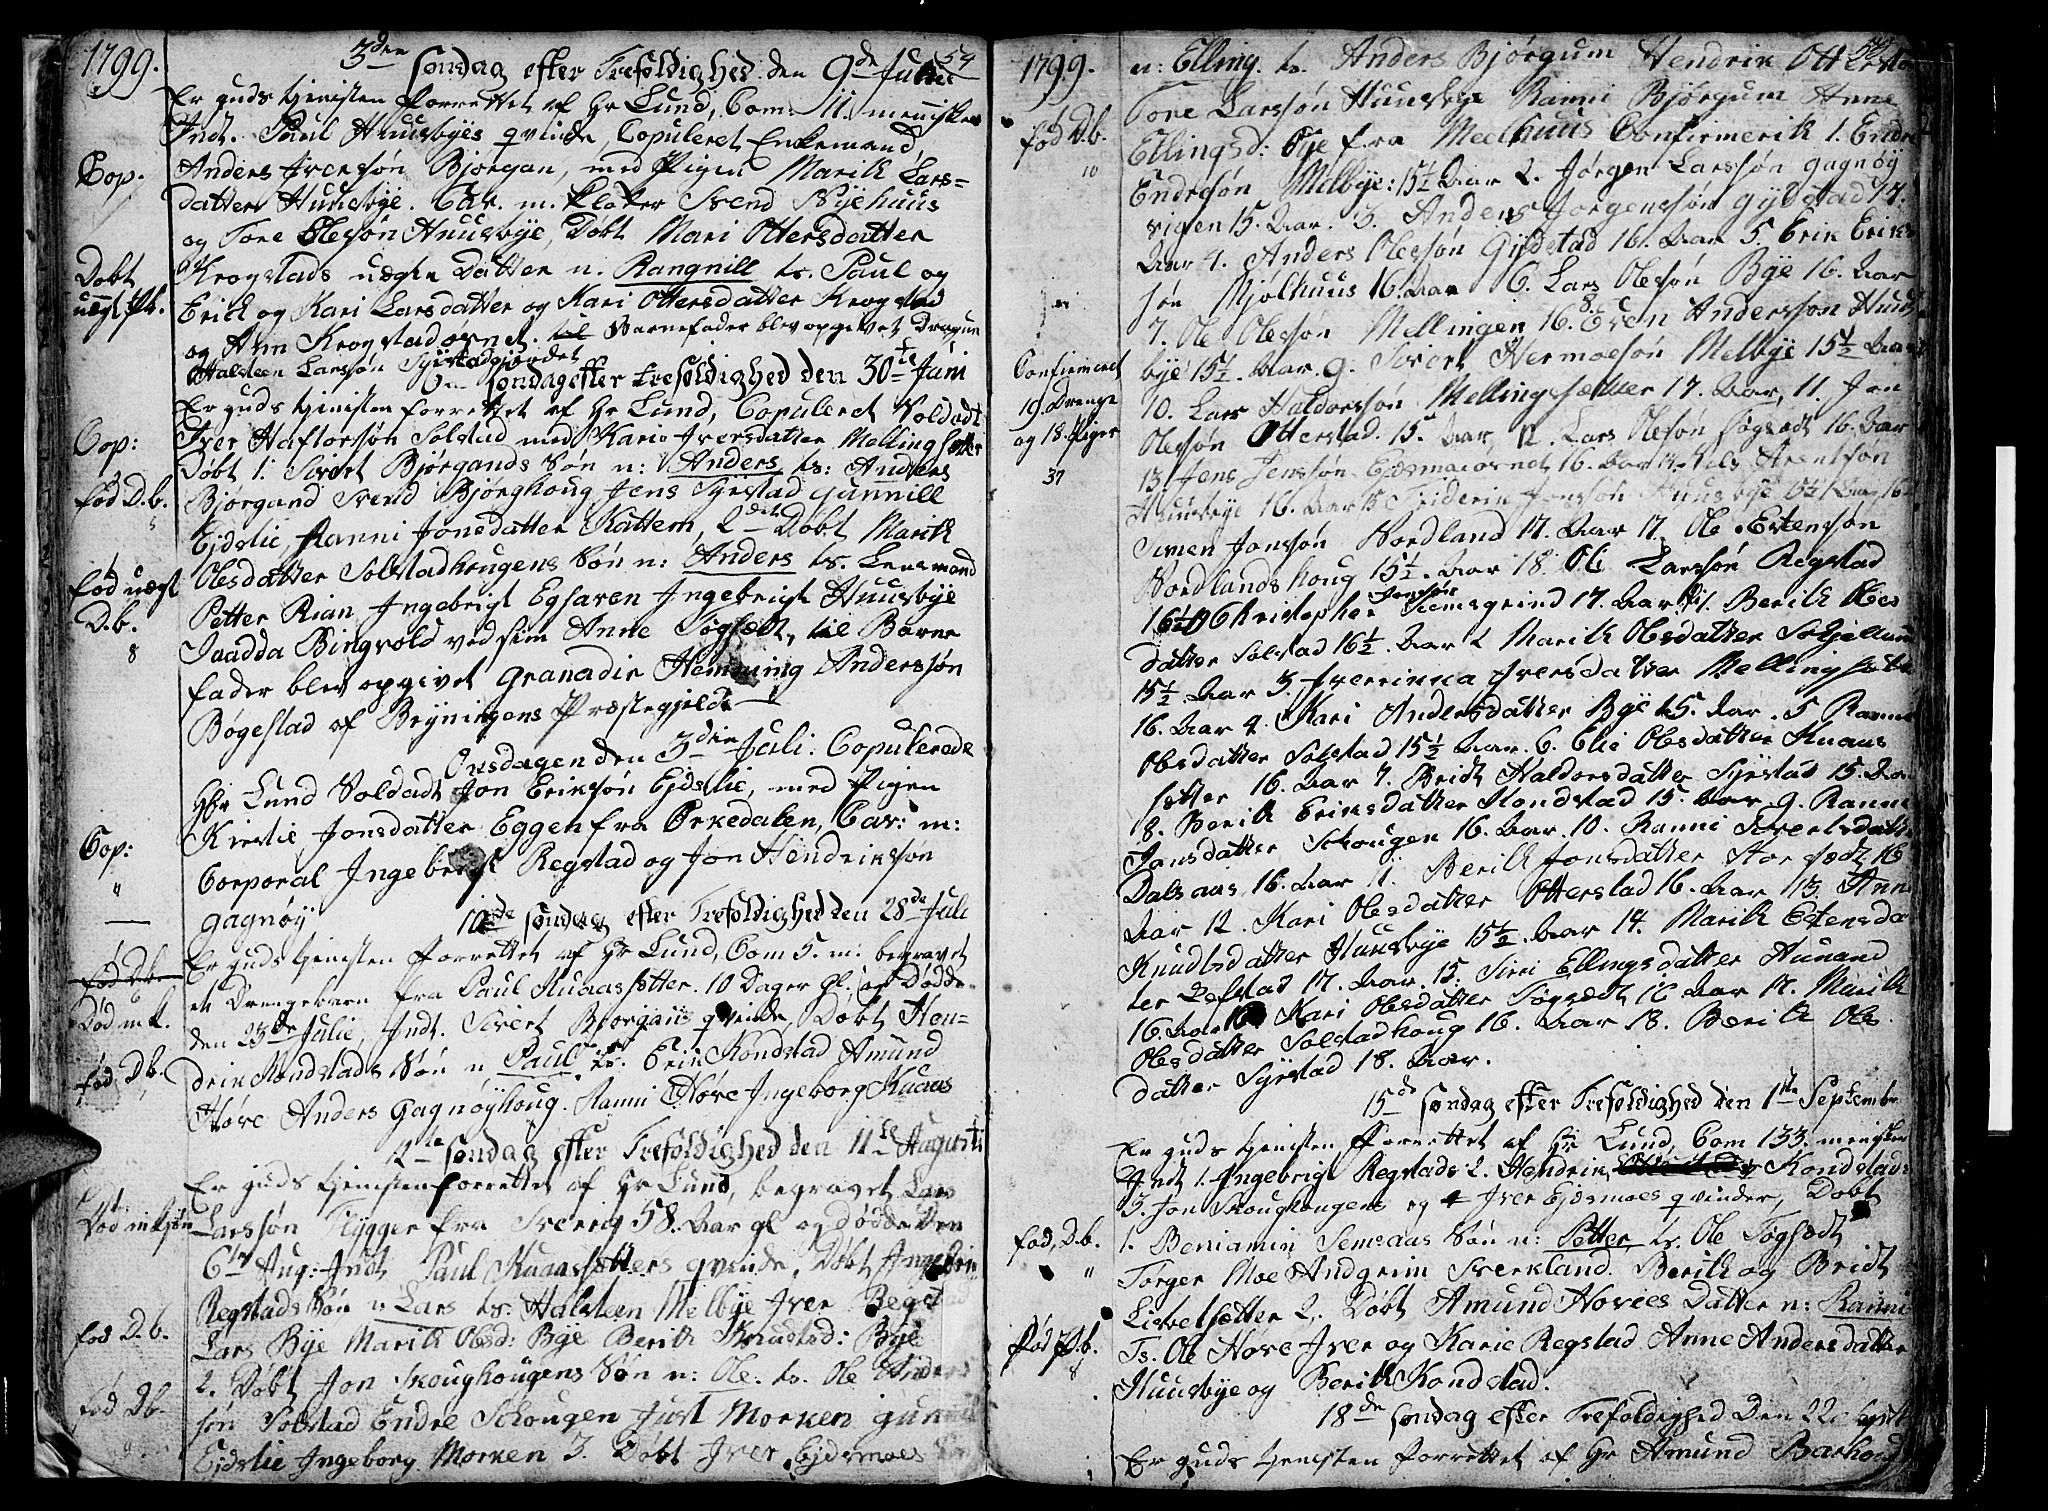 1799.
3den søndag efter Trefoldighed den 9de Junie 54
Er guds tjenisten forrettet af Hr Lund, Com. 11. mennisker
Indt. Paul Huusbyes qvinde, Copuleret Enkemand,
Cop.
Anders Iversøn Bjørgan, med Pigen Marith Lars=
datter Huusbye. Cav. m. Kloker Svend Nyehuus
og Tore Olesøn Huusbye, Døbt Mari Ottersdatter
Døbt
uægt
Krogstads uægte Datter n. Rangnill ts. Paul og
Erick og Kari Larsdatter og Kari Ottersdatter Krogstad
og Arn Krogstadørnet. til Barnefader blev opgivet Dragun
Halsteen Larssøn
søndag efter trefoldighed den 30te Juni
Er guds tjenisten forrettet af Hr Lund, Copuleret Soldadt
Cop:
Iver Haftorssøn Solstad med Karie Iversdatter Mellingsætter
Døbt 1. Sivert Bjørgands Søn n: Anders ts: Anders
fød D.b.
Bjørgand Svend Bjørghoug Jens Syrstad Gunnill
Ejdslie, Ranni Jonsdatter Kattem, 2det Døbt Marith
fød uægt
Olesdatter Solstadhougens Søn n: Anders ts. Lensmand
D.b.
8
Petter Rian Ingebrigt Egharen Ingebrigt Huusbye
Jaadda Bingvold ved sim Anne Søgstedt, til Barne
fader blev opgivet Granadir Hemming Anderssøn
Bøgestad af Bøyningens Præstegjeld
Onsdagen den 3den Juli. Copulerede
Cop:
"
Hr Lund Soldadt Jon Eriksøn Ejdslie, med Pigen
Kirstie Jonsdatter Eggen fra Ørkedalen, Cav: m:
Corporal Ingebrigt Regstad og Jon Hendriksøn
gagnøy
10de søndag efter Trefoldighed den 28de Juli
Er guds tjenisten forrettet af Hr Lund, Com 5. m: begravet
fød D.b.
6
Død m.k.
et Drengebarn fra Paul Kuaassætter. 10 Dager gl. og Dødde
den 23de Julie, Indt. Sivert Bjørgans qvinde, Døbt Hen=
fød D.b.
drik Kondstads Søn n Paul. ts. Erik Kondstad Amund
Hove Anders Gagnøyhoug. Ranni Hove Ingeborg Kuaas
12te søndag efter Trefoldighed den 11te Augusti
Er guds tjenisten forrettet af Hr Lund, begravet Lars
Død mkjøn
Larssøn Flygger fra Sverrig 58. Aar gl og dødde den
6te Aug: Indt Paul Kuaassætters qvinde, Døbt Ingebrig
fød D.b.
Regstads Søn n Lars ts: Halsteen Melbye Iver Regstad
Lars Bye Marith Olesd: Bye Berith Knudtsd: Bye
fød Db.
2. Døbt Jon Skoughougens Søn n: Ole. ts. Ole Anders
søn Solstad Endre Schougen Just Morken gunnill
Ejdslie Ingeborg Morken 3. Døbt Iver Ejdsmoes
1799.
n: Elling. ts. Anders Bjørgum Hendrik
fød D.b.
10
Tore Larssøn Huusbye Ranni Bjørgum Anne
Ellingsd: Øye fra Meelhuus Confirmerik 1. Endre
Endresøn Melbye: 15½ Aar 2. Jørgen Larssøn gagnøy
vigen 15. Aar. 3. Anders Jørgenssøn gylstad 17.
Aar 4. Anders Olessøn Gylstad 16. Aar 5. Erik Eriks
søn Mjølhuus 16. Aar 6. Lars Olessøn Bye 16. Aar
7. Ole Olessøn Mellingen 16. 8. Even Anderssøn Huus
Confirmeret
19 Drenge
og 18. Piger
37
bye 15½. Aar. 9. Sivert Hermoesøn Melbye 15½ Aar
10. Lars Haldorssøn Mellingsætter 17. Aar, 11. Jon
Olessøn Otterstad. 15. Aar, 12. Lars Olesøn Søgsædt 16. Aar
13. Jens Jenssøn Ejdsmoeørnet 16. Aar 14. Nils Arentsøn
Huusbye 16. Aar 15. Friderik Jonssøn Huusbye 15½ Aar 16.
Simen Jonssøn Nordland 17. Aar 17. Ole Estenssøn
Nordlandshoug 15½. Aar 18. Ole Larssøn Regstad
16½ Christopher Jonssøn Siemsgrind 17. Aar 1. Berith Oles
datter Solstad 16½ Aar 2 Marith Olesdatter
15½. Aar 3. Iverinna Iversdatter Mellingsætter
16. Aar 4. Kari Andersdatter Bye 15. Aar. 5 Ranni
Olesdatter Solstad 15½ Aar. 6. Elie Olesdatter Kuaas
sætter 16. Aar 7. Bridt Haldorsdatter Syrstad 15. Aar
8. Berith Eriksdatter Kondstad 15. Aar 9. Ranni
Jonsdatter Schougen 16. Aar. 10. Ranni Sivertsdatter
Dalsaas 16. Aar 11. Berith Jonsdatter Storsædt 16
Aar 12. Kari Olesdatter Otterstad 16. Aar 13 Anne
Knudtsdatter Huusbye 15½. Aar 14. Marith Estensdat
ter Lefstad 17. Aar. 15. Siri Ellingsdatter Hunand
16. Aar 16 Kari Olesdatter Søgsædt 16 Aar 17. Marith
Olesdatter Solstadhoug 16. Aar 18. Berith Oles
datter Syrstad 18. Aar.
15de søndag efter Trefoldighed den 1ste Septembr
Er guds tjenisten forrettet af Hr Lund, Com 133. menisker
Indt 1. Ingebrigt Regstads 2. Hendrik Kondstads
3. Jon Skoughougens og 4 Iver Ejdsmoes qvinder, Døbt
fød, D.b.
"
1. Beniamin Semsaas Søn n: Petter ts. Ole Søgsædt
Torger Moe Andgrim Sverkland. Berith og Bridt
Lisbetsætter 2. Døbt Amund Hovies Datter n: Ranni
fød P.b.
8
Ts. Ole Hove Iver og Karie Regstad Anne Andersdatter
Huusbye og Berith Kondstad.
18de søndag efter Trefoldighed Den 22de
Er guds tjenisten forrettet af Hr Amund Barhond